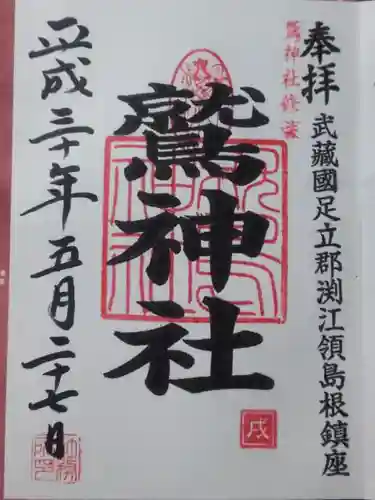 奉拝
武藏國足立郡渕江領島根鎮座
鷲神社
戌
平成三十年五月二十七日